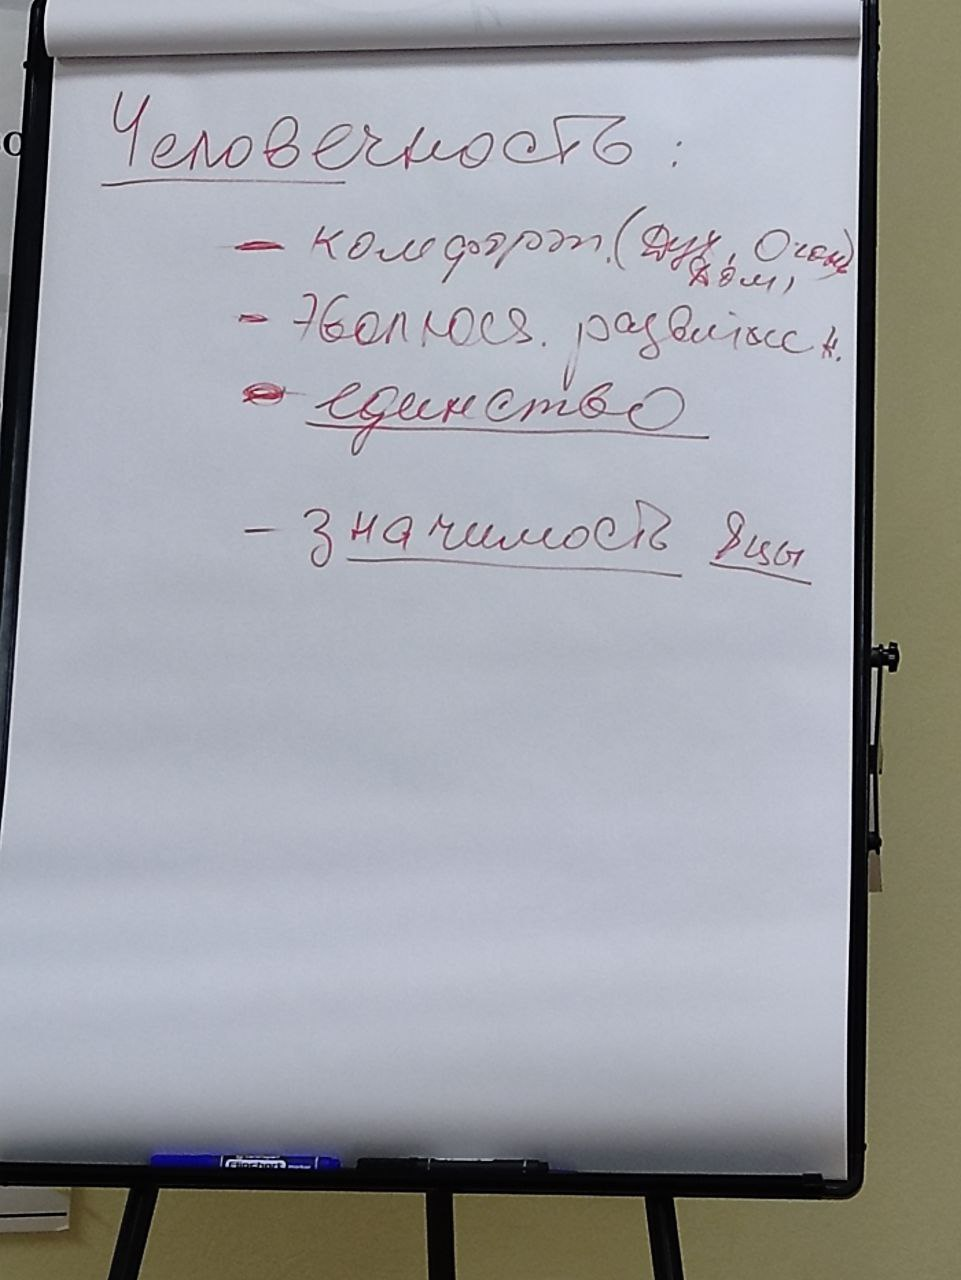 Человечность:
- комфорт. (Дух, Очаг)
Дом,
- Эволюся. развитие ч.
- единство
- значимость 8цы
Flipchart marker